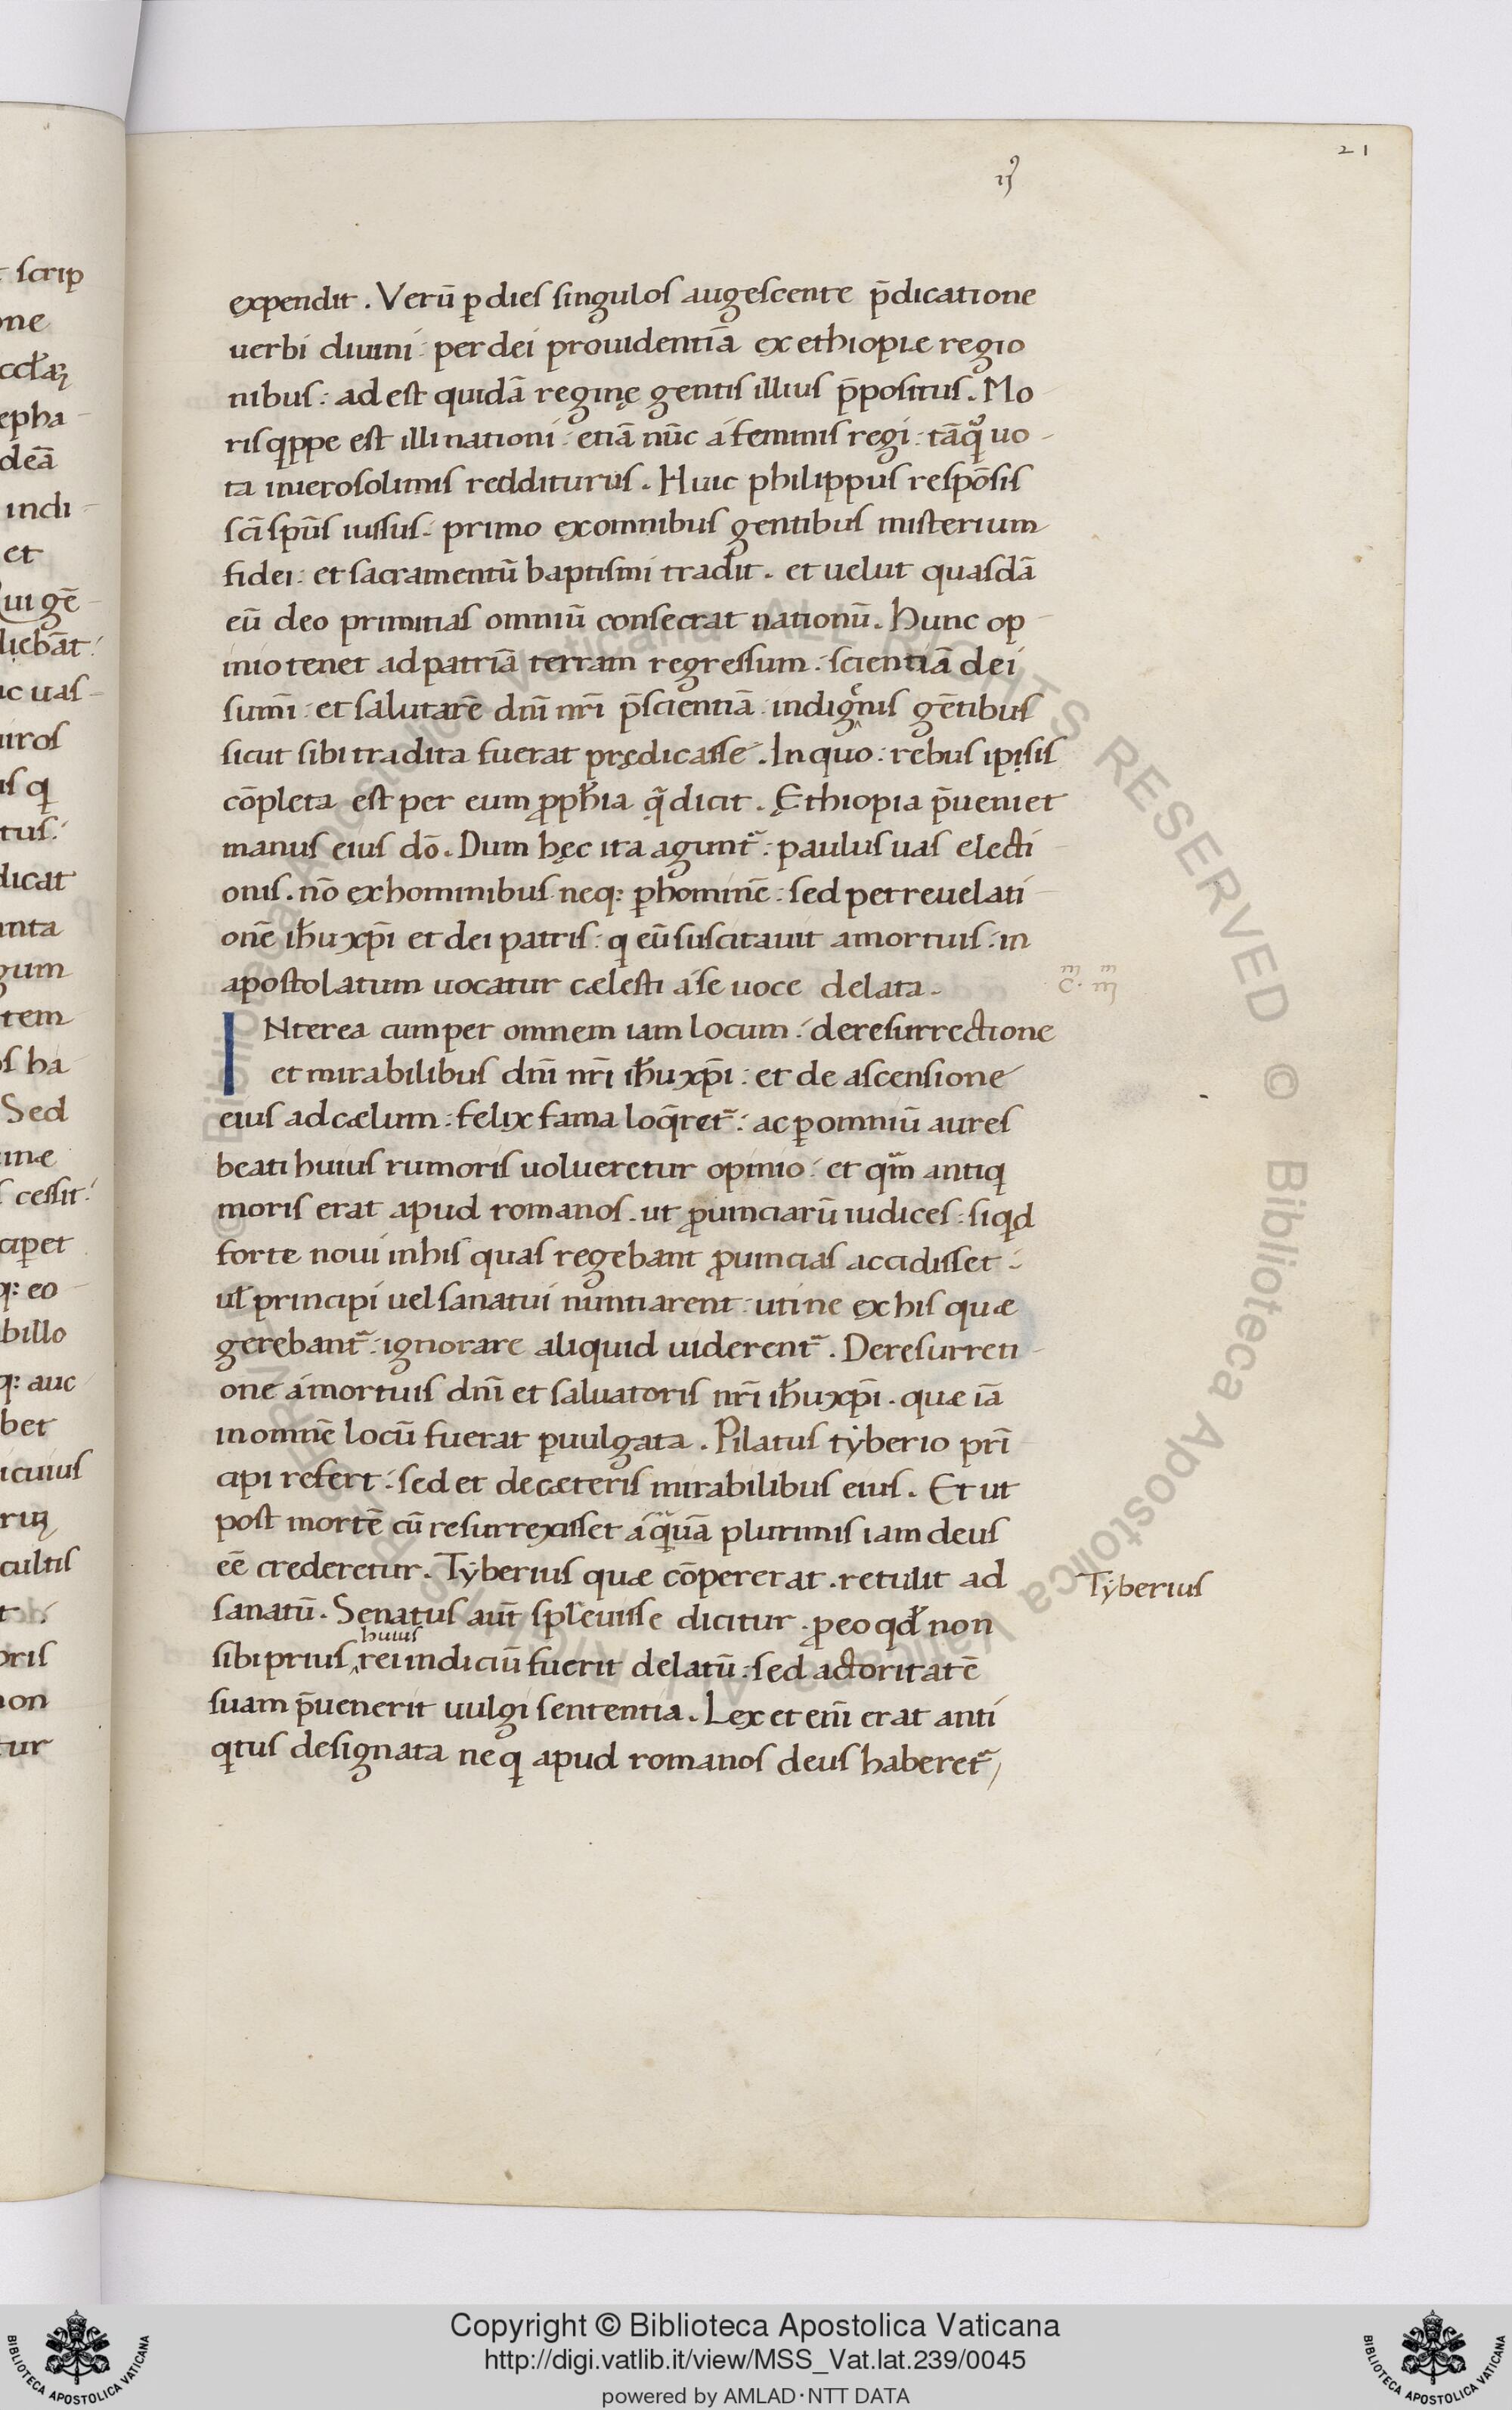 21
ıȷ⁹
expendit . Verū ꝑ dies singulos augescente p̄dicatione
uerbi diuini : per dei prouidentiā ex ethiopie regio
nibus : ad est quidā reginę gentis illius p̄positus . Mo
ris qippe est illi nationi : etiā nūc á feminis regi : tāq uo
ta in ierosolimis redditurus . Huic philippus respōsis
sc̄i sp̄us iussus : primo ex omnibus gentibus misterium
fidei : et sacramentū baptismi tradit . et uelut quasdā
eū deo primitias omniū consecrat nationū . Hunc op
inio tenet ad patriā terram regressum : scientiā dei
sum̄i : et salutarē dn̄i nr̄i p̄scientiā indigenis gētibus
sicut sibi tradita fuerat prędicasse . In quo : rebus ipsis
cōpleta est per eum ꝓph̄ia q̄ dicit . Ęthiopia p̄ueniet
manus eius dō . Dum hęc ita agunt̄ : paulus uas electi
onis . nō ex hominibus neq: ꝑ hominē : sed per reuelati
onē ih̄u xp̄i et dei patris : q eū suscitauit a mortuis : in
apostolatum uocatur cælesti a se uoce delata .
INterea cum per omnem iam locum : de resurrectione
et mirabilibus dn̄i nr̄i ih̄u xp̄i : et de ascensione
eius ad cælum : felix fama loq̄ret̄ : ac ꝑ omniū aures
beati huius rumoris uolueretur opinio : et qm̄ antiq
moris erat apud romanos . ut ꝓuinciarū iudices : siqd
forte noui in his quas regebant ꝓuincias accidisset :
ul̄ principi uel sanatui nuntiarent : uti ne ex his quæ
gerebant̄ : ignorare aliquid uiderent̄ . De resurreti
one á mortuis dn̄i et saluatoris nr̄i ih̄u xp̄i . quæ iā
in omnē locū fuerat ꝑuulgata . Pilatus tẏberio pri̅
cipi refert : sed et de cæteris mirabilibus eius . Et ut
post mortē cū resurrexisset á quā plurimis iam deus
eē crederetur . Tẏberius quæ cōpererat . retulit ad
sanatū . Senatus aut̄ spreuisse dicitur . ꝓ eo qd̄ non
sibi prius huius rei indiciū fuerit delatū : sed actoritatē
suam p̄uenerit uulgi sententia . Lex et eni̅ erat anti
qtus designata neq apud romanos deus haberet̄
Tẏberius
Copyright © Biblioteca Apostolica Vaticana
http://digi.vatlib.it/view/MSS_Vat.lat.239/0045
powered by AMLAD·NTT DATA
BIBLIOTECA APOSTOLICA VATICANA
BIBLIOTECA APOSTOLICA VATICANA